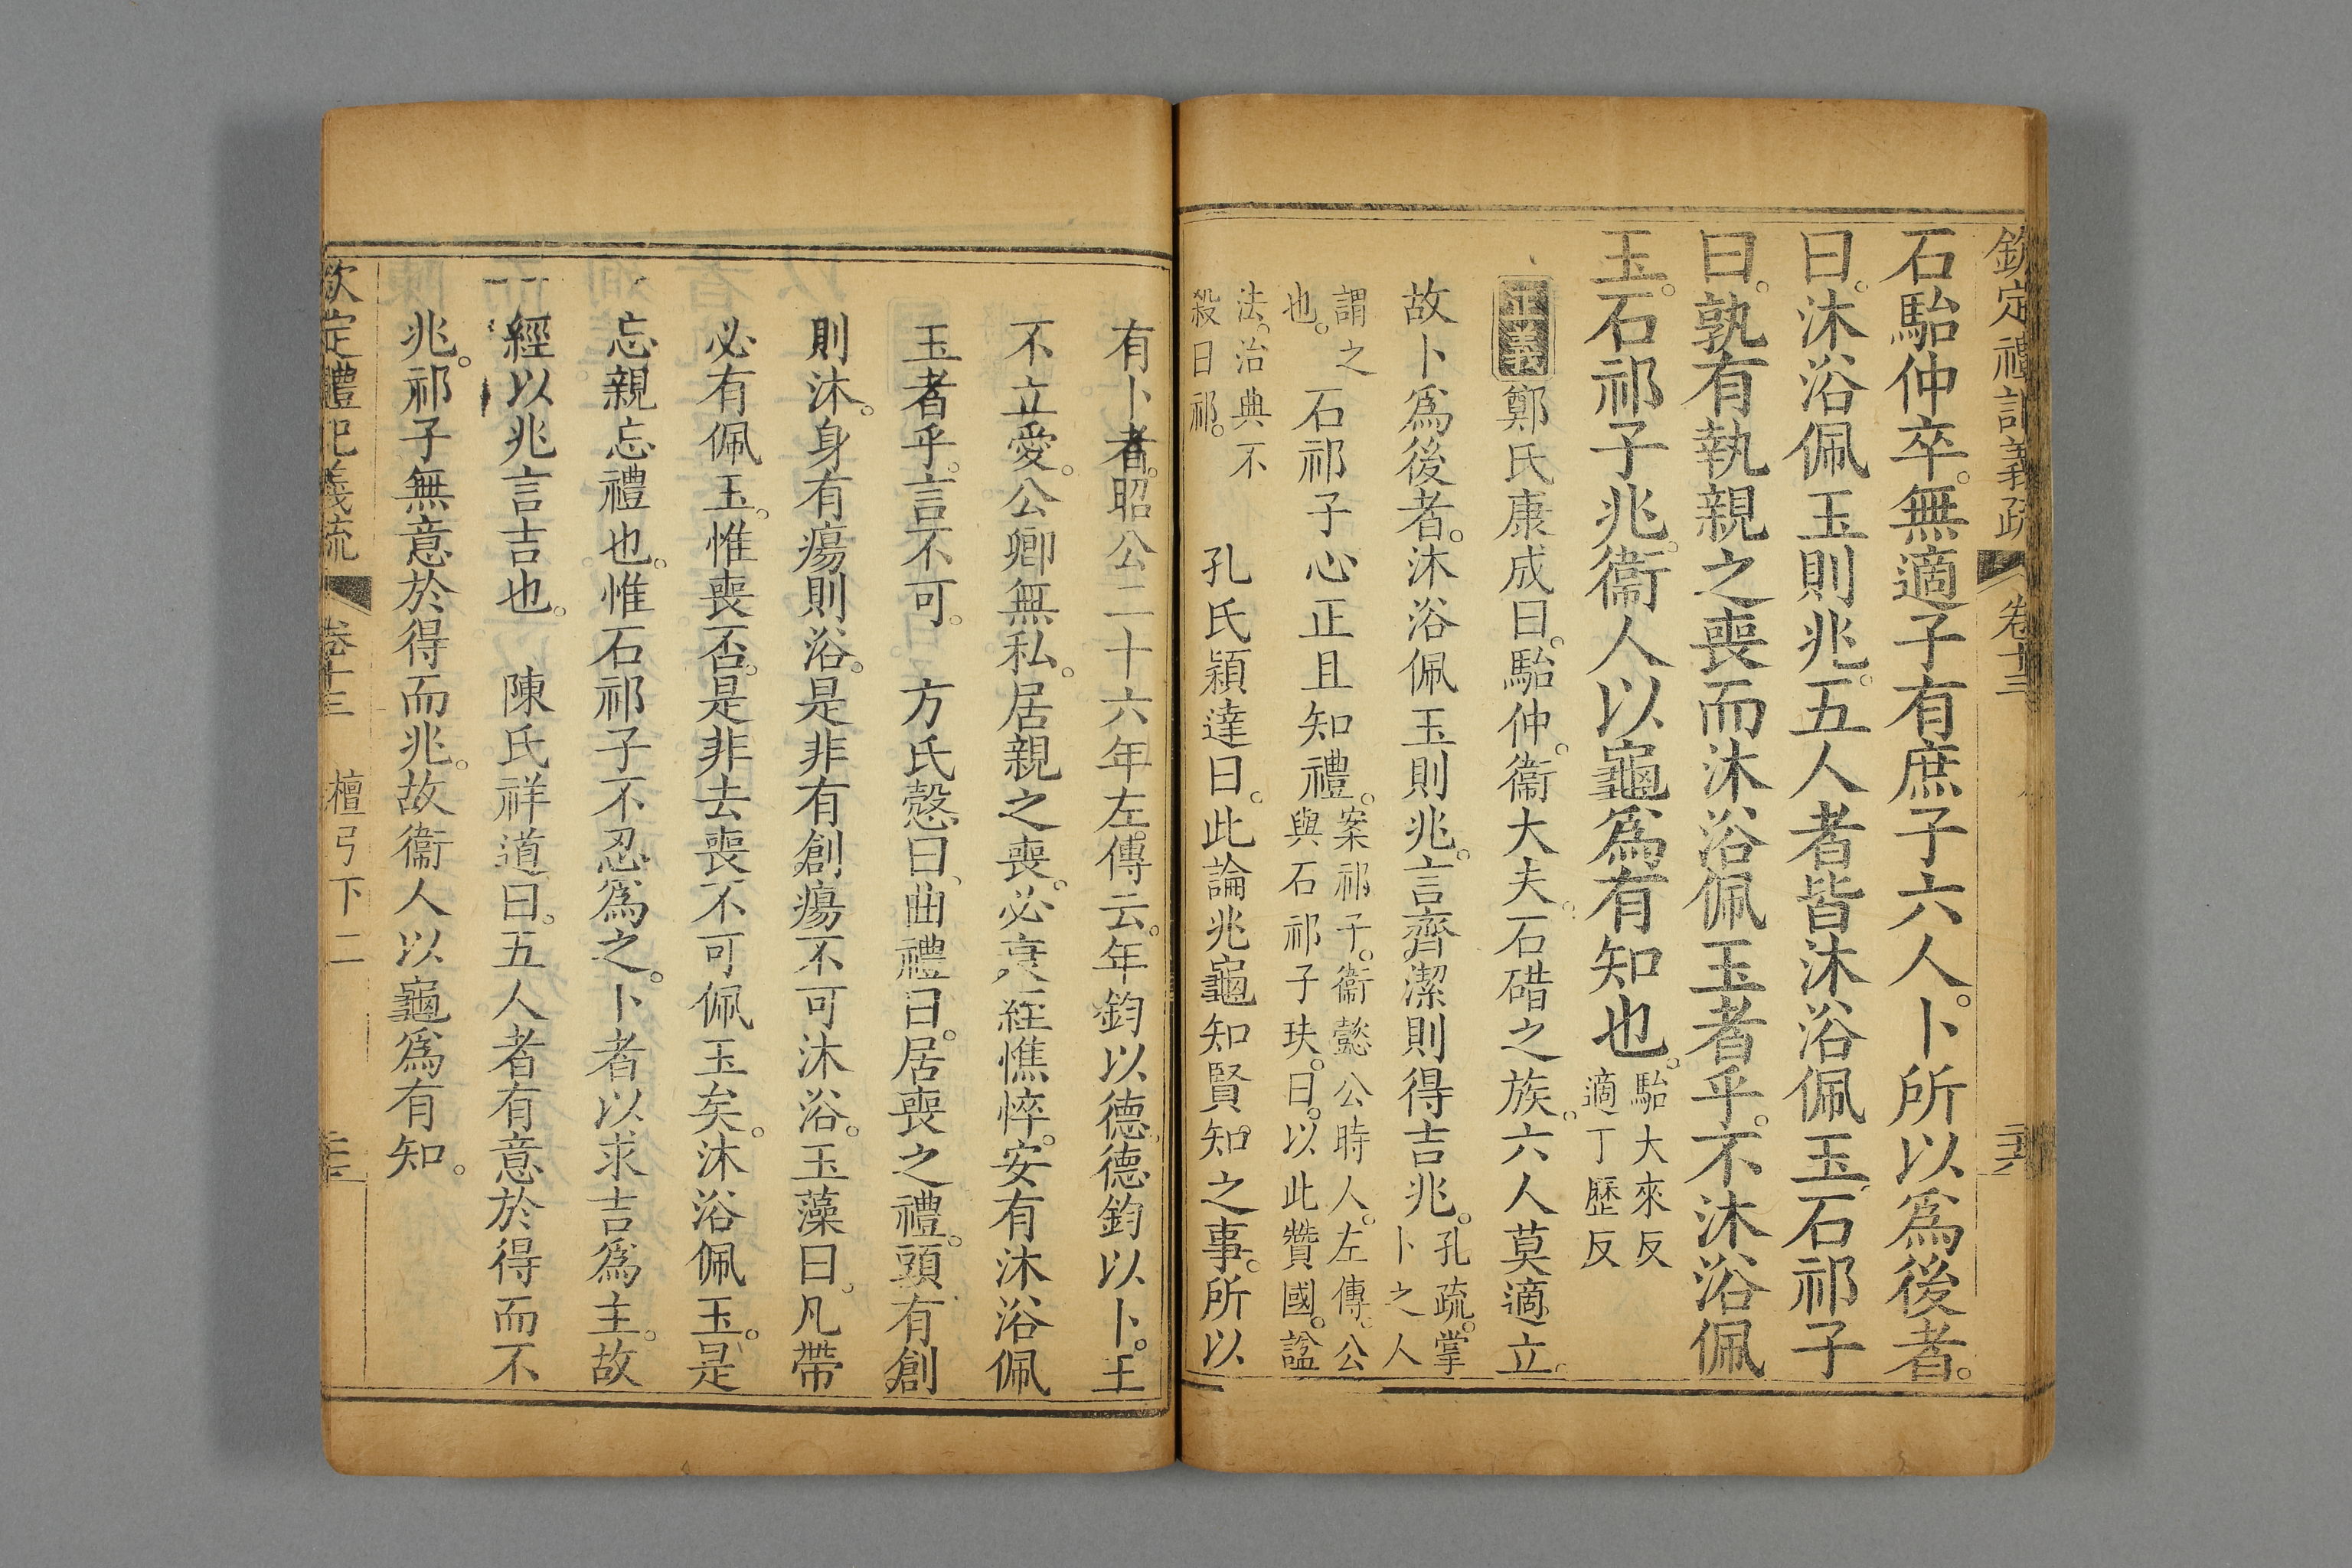 欽定禮記義疏 卷十三
石駘仲卒。無適子有庶子六人。卜所以爲後者。
曰。沐浴佩玉則兆。五人者皆沐浴佩玉。石祁子
曰。孰有執親之喪而沐浴佩玉者乎。不沐浴佩
玉。石祁子兆。衞人以龜爲有知也。駘大來反
適丁歷反
正義 鄭氏康成曰。駘仲。衞大夫。石碏之族。六人莫適立。
故卜爲後者。沐浴佩玉則兆。言齊潔則得吉兆。孔疏。掌
卜之人
謂之
也。石祁子心正且知禮。案祁子。衞懿公時人。左傳。公
與石祁子玦。曰。以此贊國。諡
法。治典不
殺曰祁。 孔氏穎達曰。此論兆龜知賢。知之事。所以
有卜者。昭公二十六年左傳云。年鈞以德德鈞以卜。王
不立愛。公卿無私。居親之喪。必衰絰憔悴。安有沐浴佩
玉者乎。言不可。 方氏慤曰。曲禮曰。居喪之禮。頭有創
則沐。身有瘍則浴。是非有創瘍不可沐浴。玉藻曰。凡帶
必有佩玉。惟喪否。是非去喪不可佩玉矣。沐浴佩玉。是
忘親忘禮也。惟石祁子不忍爲之。卜者以求吉爲主。故
經以兆言吉也。 陳氏祥道曰。五人者有意於得而不
兆。祁子無意於得而兆。故衞人以龜爲有知。
欽定禮記義疏 卷十三 檀弓下二